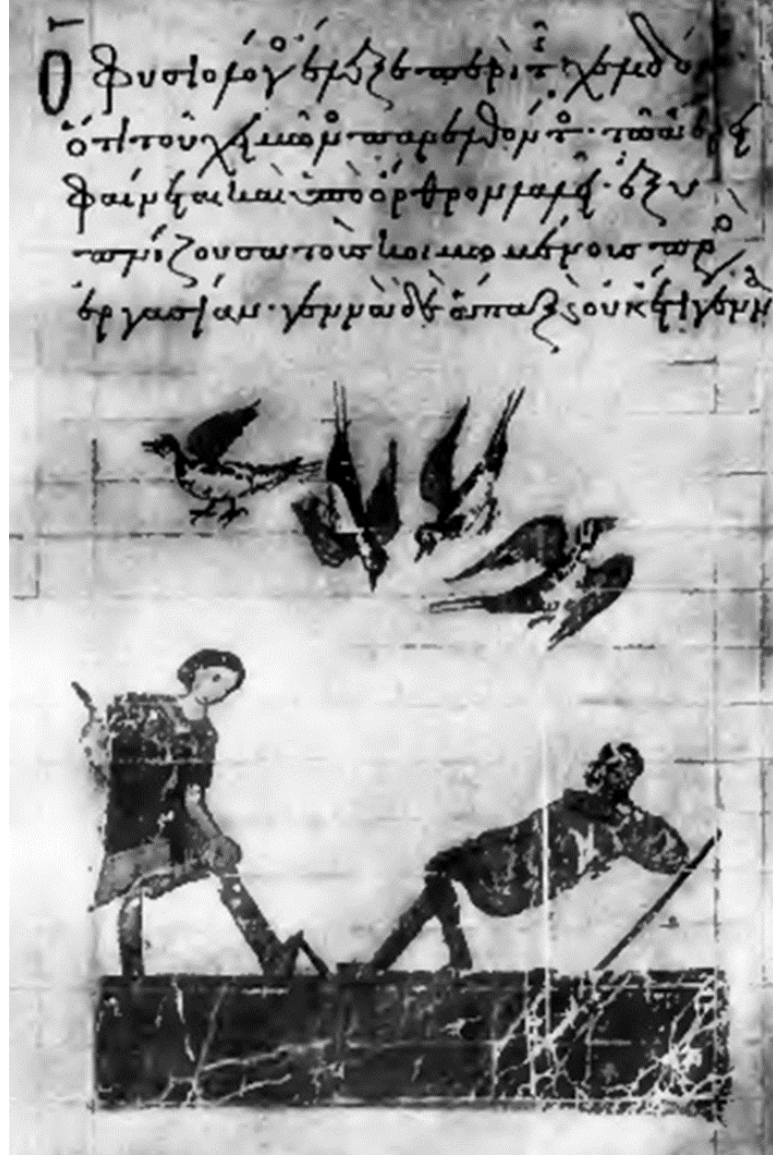 Ὁ φυσιολόγο ἔλεξε περὶ τ χελιδό
ὅτι τοῦ χειμῶνο παρελθόντο· τῶ
φαίνεται καὶ ὑπὸ ὄρθρον λαλεῖ· ἐξυ
πνίζουσα τοὺς κοιμωμένους πρὸ
ἐργασίαν· γεννᾶ δὲ ἅπαξ ϛ οὐκέτι γεννᾶ